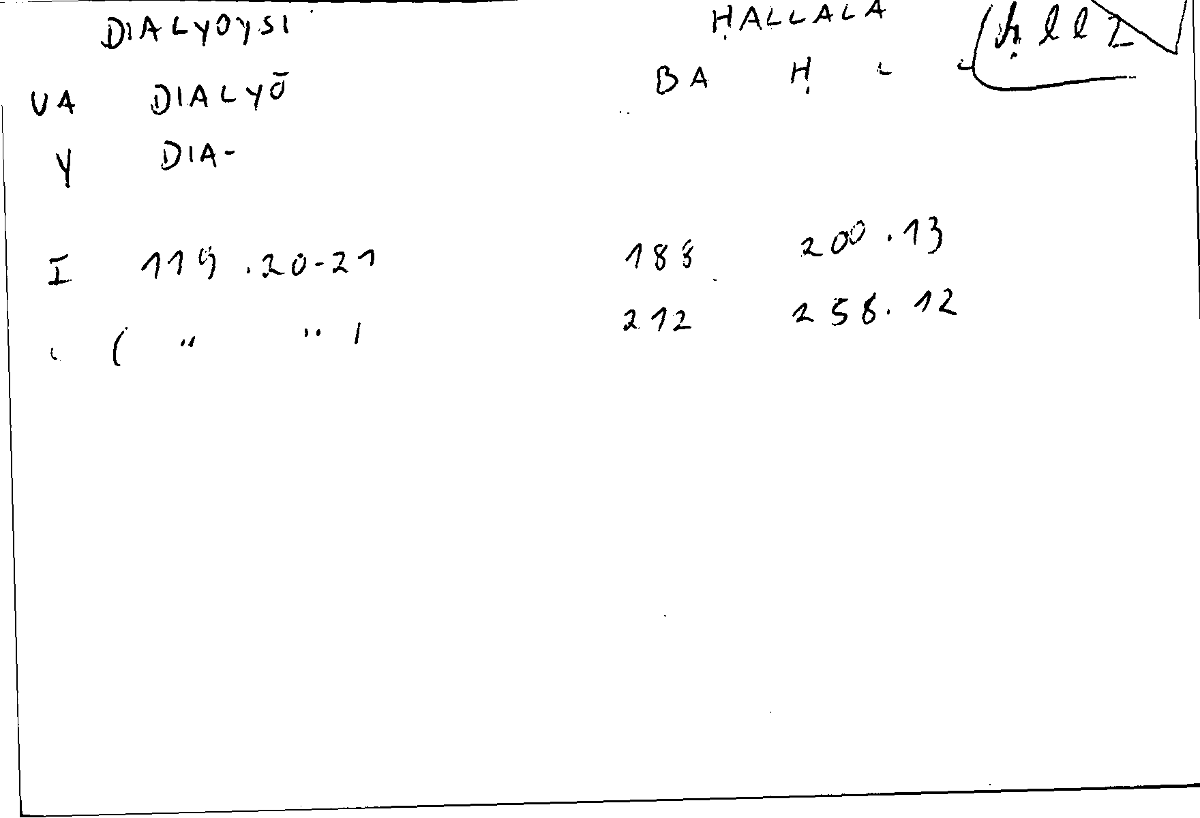 DIALYOYSI ḤALLALA ḥll2
VA DIALYŌ BA Ḥ
Y DIA-
I 119.20-21 188 200.13
( " " ) 212 258.12